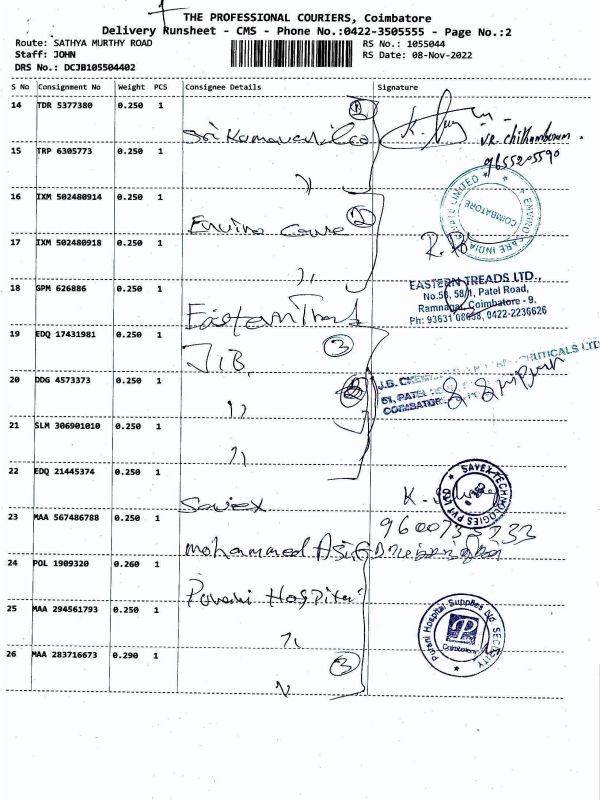 THE PROFESSIONAL COURIERS, Coimbatore
Delivery Runsheet - CMS - Phone No.:0422-3505555 - Page No.:2
Route: SATHYA MURTHY ROAD
RS No.: 1055044
Staff: JOHN
RS Date: 08-Nov-2022
DRS No.: DCJB105504402
S No Consignment No Weight PCS Consignee Details Signature
14 TDR 5377380 0.250 1
VR. Chithambaram
9655205590
15 TRP 6305773 0.250 1
16 IXM 502480914 0.250 1
Enviro Care
ENVIRO CARE INDIA PVT LIMITED
COIMBATORE
17 IXM 502480918 0.250 1
18 GPM 626886 0.250 1
Eastern
EASTERN TREADS LTD.,
No.56, 58/1, Patel Road,
Ramnagar, Coimbatore - 9.
Ph: 93631 08038, 0422-2236626
19 EDQ 17431981 0.250 1
J.B. 3
20 DDG 4573373 0.250 1
J.B. LTD
51, PATEL
COIMBATORE
21 SLM 306901010 0.250 1
22 EDQ 21445374 0.250 1
Savex
SAVEX TECHNOLOGIES PVT LTD
23 MAA 567486788 0.250 1
mohammed
24 POL 1909320 0.260 1
Hospital
25 MAA 294561793 0.250 1
Purani Hospital Supplies
SECURITY
Coimbatore
26 MAA 283716673 0.290 1
3